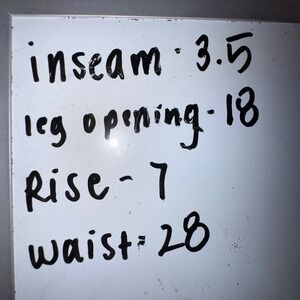 inseam - 3.5
leg opening - 18
Rise - 7
waist - 28